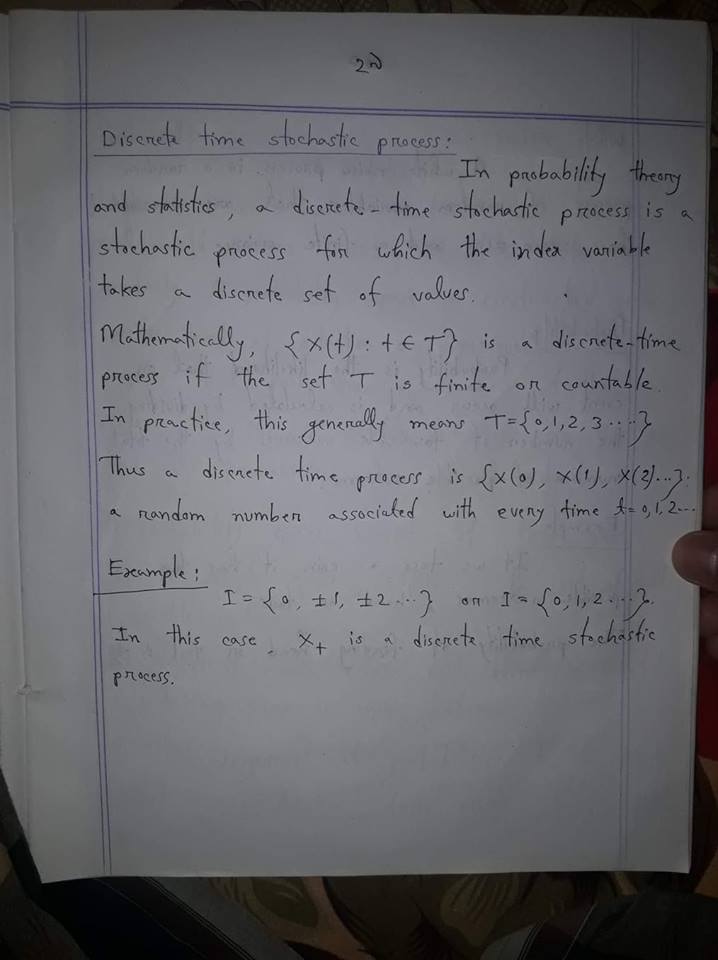 ২৯
Discrete time stochastic process:
In probability theory
and statistics, a discrete-time stochastic process is a
stochastic process for which the index variable
takes a discrete set of values.
Mathematically, {X(t) : t ∈ T} is a discrete-time
process if the set T is finite or countable.
In practice, this generally means T={0,1,2,3....}
Thus a discrete time process is {X(0), X(1), X(2)...}:
a random number associated with every time t=0,1,2...
Example:
I = {0, ±1, ±2...} or I = {0,1,2...}.
In this case, Xt is a discrete time stochastic
process.